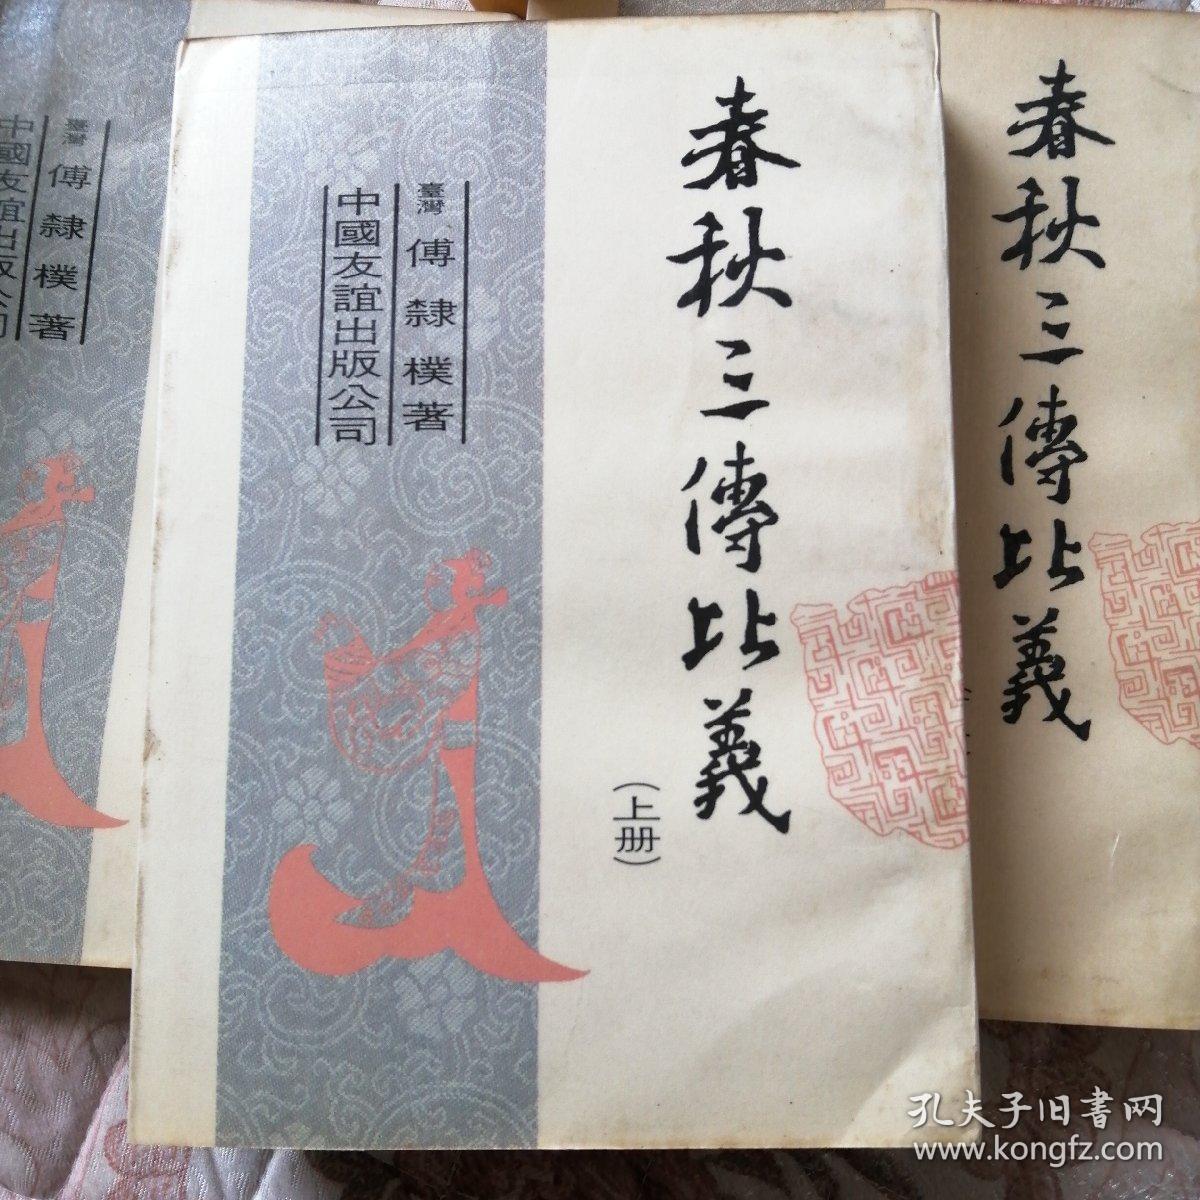 春秋三傳比義
(上册)
臺灣 傅隸樸著
中國友誼出版公司
春秋三傳比義
臺灣 傅隸樸著
中國友誼出版公司
孔夫子旧書网
www.kongfz.com